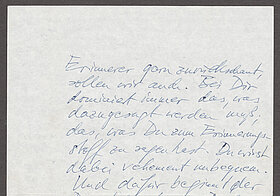 Erinnerer gern zurückschaut,
sollen wir auch. Bei Dir
dominiert immer das, was
dazugesagt werden muß,
das, was Du zum Erinnerungs-
stoff zu sagen hast. Du wirst
dabei vehement unbequem.
Und dafür beginnt der